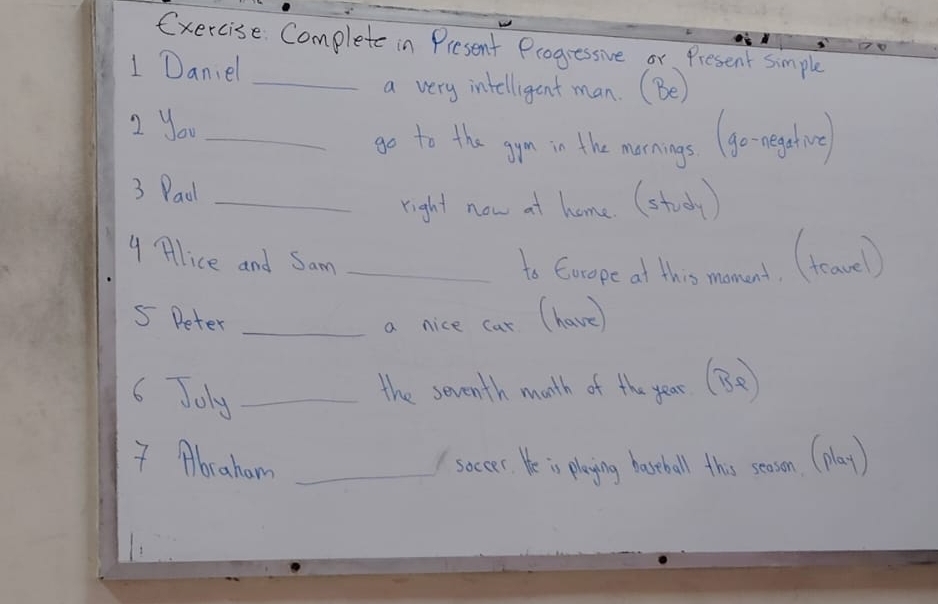 Exercise: Complete in Present Progressive or Present Simple
1 Daniel ________ a very intelligent man. (Be)
2 You ________ go to the gym in the mornings. (go-negative)
3 Paul ________ right now at home. (study)
4 Alice and Sam ________ to Europe at this moment. (travel)
5 Peter ________ a nice car. (have)
6 July ________ the seventh month of the year. (Be)
7 Abraham ________ soccer. He is playing baseball this season. (play)